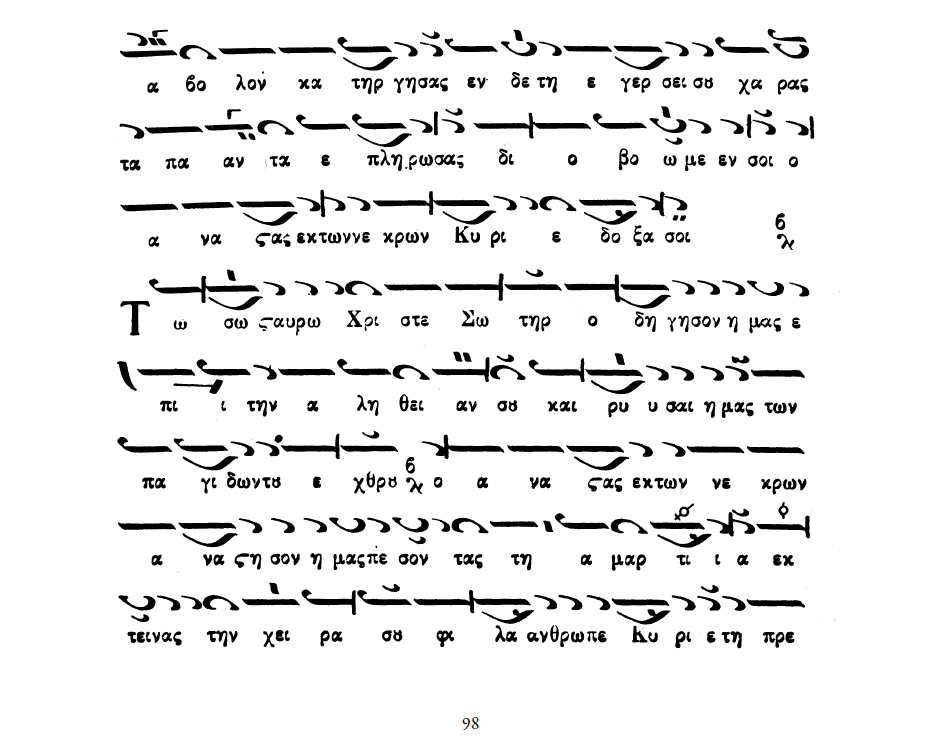 α βο λον κα τηρ γησας εν δε τη ε γερ σει σȣ χα ρας
τα πα αν τα ε πλη ρωσας δι ο βο ω με εν σοι ο
α να ϛας εκ των νε κρων Κυ ρι ε δο ξα σοι
Τω σω ϛαυρω Χρι στε Σω τηρ ο δη γησον η μας ε
πι ι την α λη θει αν σȣ και ρυ υ σαι η μας των
πα γι δων τȣ ε χθρȣ ο α να ϛας εκ των νε κρων
α να ϛη σον η μας πε σον τας τη α μαρ τι ι α εκ
τεινας την χει ρα σȣ φι λα ανθρωπε Κυ ρι ε τη πρε
98